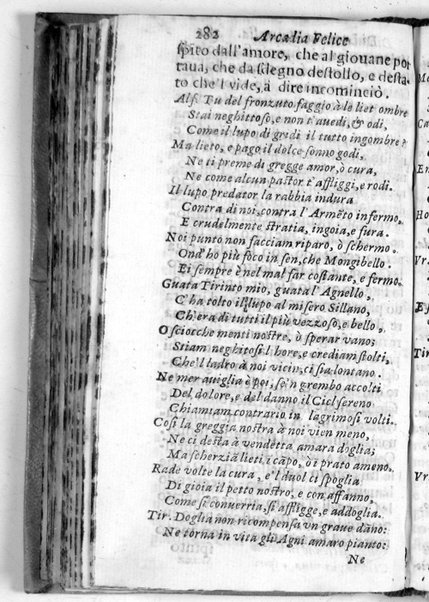 282 Arcadia Felice
spito dall'amore, che al giouane por
taua, che da sdegno destollo, e desta-
to che'l vide, à dire incominciò.
Alf. Tu del fronzuto faggio à le liet' ombre
Stai neghittoso, e non t'auedi, & odi,
Come il lupo di gredi il tutto ingombre?
Ma lieto, e pago il dolce sonno godi,
Ne ti preme di gregge amor, ò cura,
Ne come alcun pastor t'affliggi, e rodi.
Il lupo predator la rabbia indura
Contra di noi, contra l'Armēto infermo,
E crudelmente stratia, ingoia, e fura.
Noi punto non facciam riparo, ò schermo,
Ond' ho più foco in sen, che Mongibello,
Ei sempre è nel mal far costante, e fermo.
Guata Tirinto mio, guata l'Agnello,
C'ha tolto il lupo al misero Sillano,
Ch'era di tutti il più vezzoso, e bello.
O sciocche menti nostre, ò sperar vano;
Stiam neghitosi l'hore, e crediam stolti,
Che'l ladro à noi vicin, ci sia lontano.
Ne merauiglia è poi, se'n grembo accolti
Del dolore, e del danno il Ciel sereno
Chiamiam contrario in lagrimosi volti.
Così la greggia nostra à noi vien meno,
Ne ci desta à vendetta amara doglia;
Ma scherziā lieti i capo, ò i prato ameno.
Rade volte la cura, e'l duol ci spoglia
Di gioia il petto nostro, e con affanno,
Come si conuerria, si affligge, e addoglia.
Tir. Doglia non ricompensa vn graue dāno:
Ne torna in vita gli Agni amaro pianto:
Ne